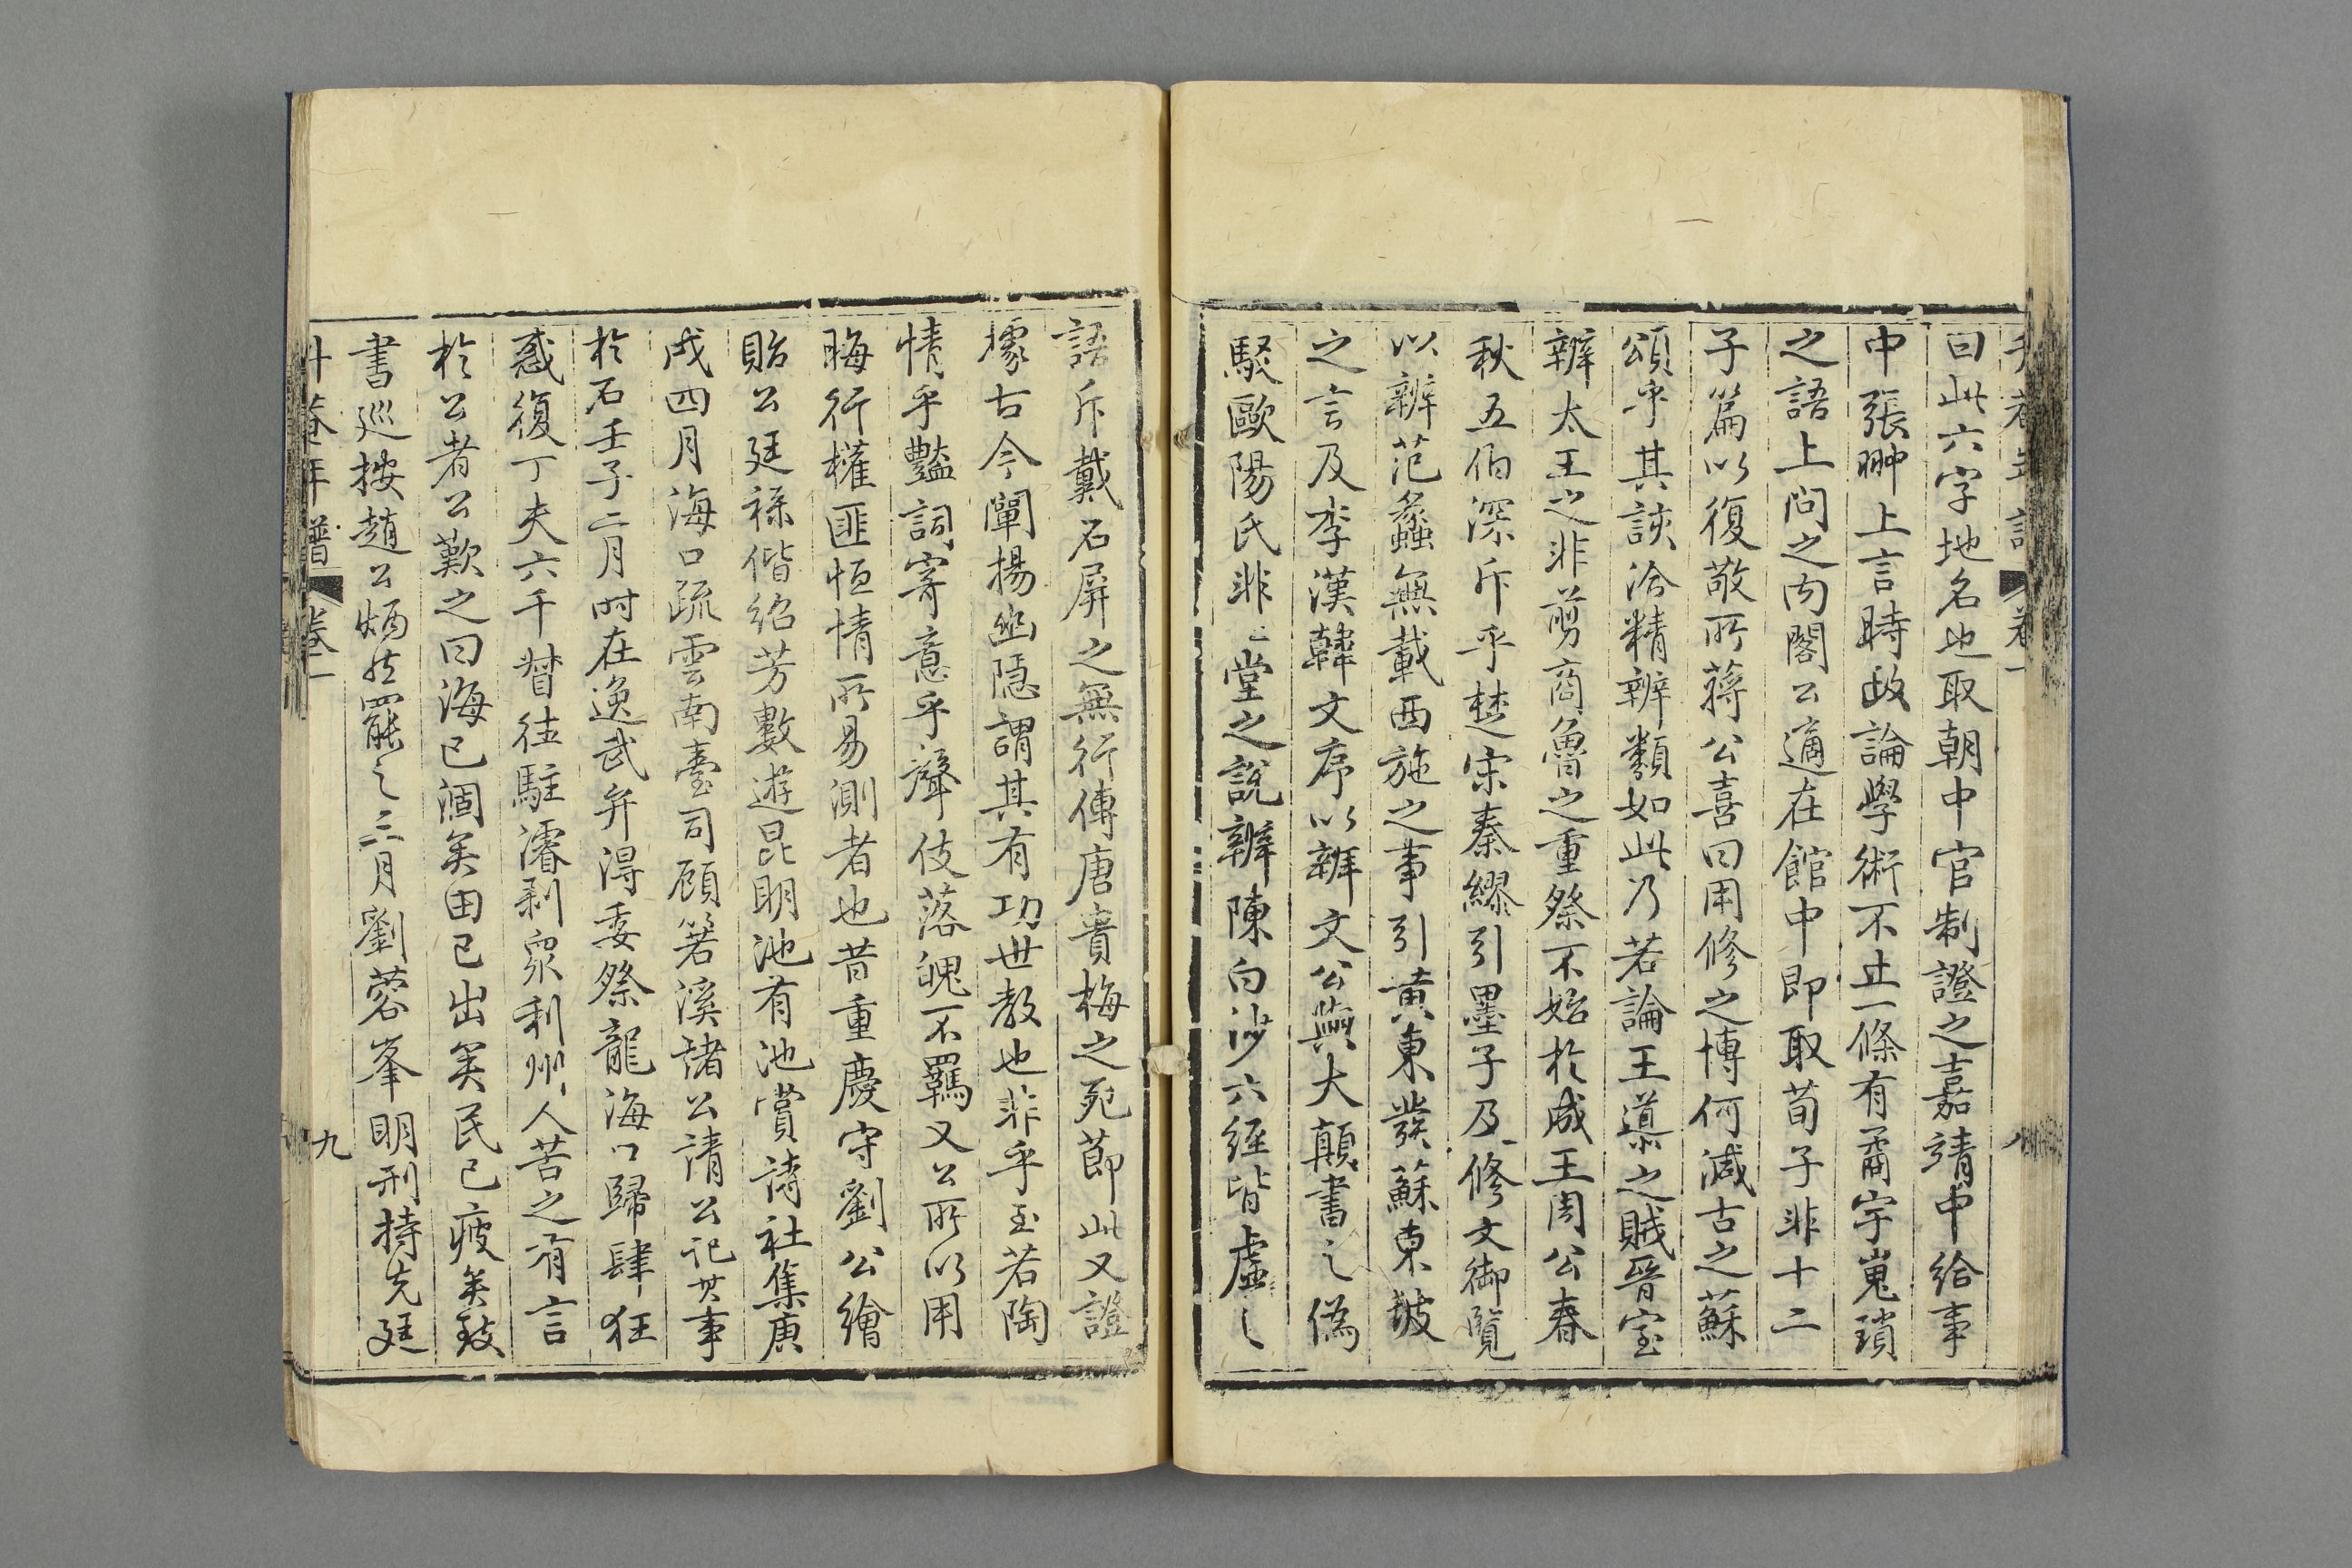 升菴年譜 卷一 八
曰此六字地名也取朝中官制證之嘉靖中給事
中張翀上言時政論學術不止一條有矞宇嵬瑣
之語上問之內閣公適在館中即取荀子非十二
子篇以復敬所蔣公喜曰用修之博何減古之蘇
頌乎其該洽精辨類如此乃若論王導之賊晉室
辨太王之非剪商魯之重祭不始於成王周公春
秋五伯深斥乎楚宋秦繆引墨子及修文御覧
以辨范蠡無載西施之事引黄東發蘇東坡
之言及李漢韓文序以辨文公與大顛書之偽
駁歐陽氏非非堂之説辨陳白沙六經皆虛之
語斥戴石屏之無行傳唐貴梅之死莭此又證
據古今闡揚幽隱謂其有功世教也非乎至若陶
情乎豔詞寄意乎聲伎落魄不羈又公所以用
晦行權匪恒情所易測者也昔重慶守劉公繪
貽公廷祿偕紹芳數遊昆明池有池賞詩社集庚
戌四月海口疏雲南臺司顧箬溪諸公請公記其事
於石壬子二月時在逸武弁淂委祭龍海口歸肆狂
惑復丁夫六千督徃駐濬剥衆利州人苦之有言
於公者公歎之曰海已涸矣田已出矣民已疲矣致
書巡按趙公炳然罷之三月劉蓉峯明刑持先廷
升菴年譜 卷一 九